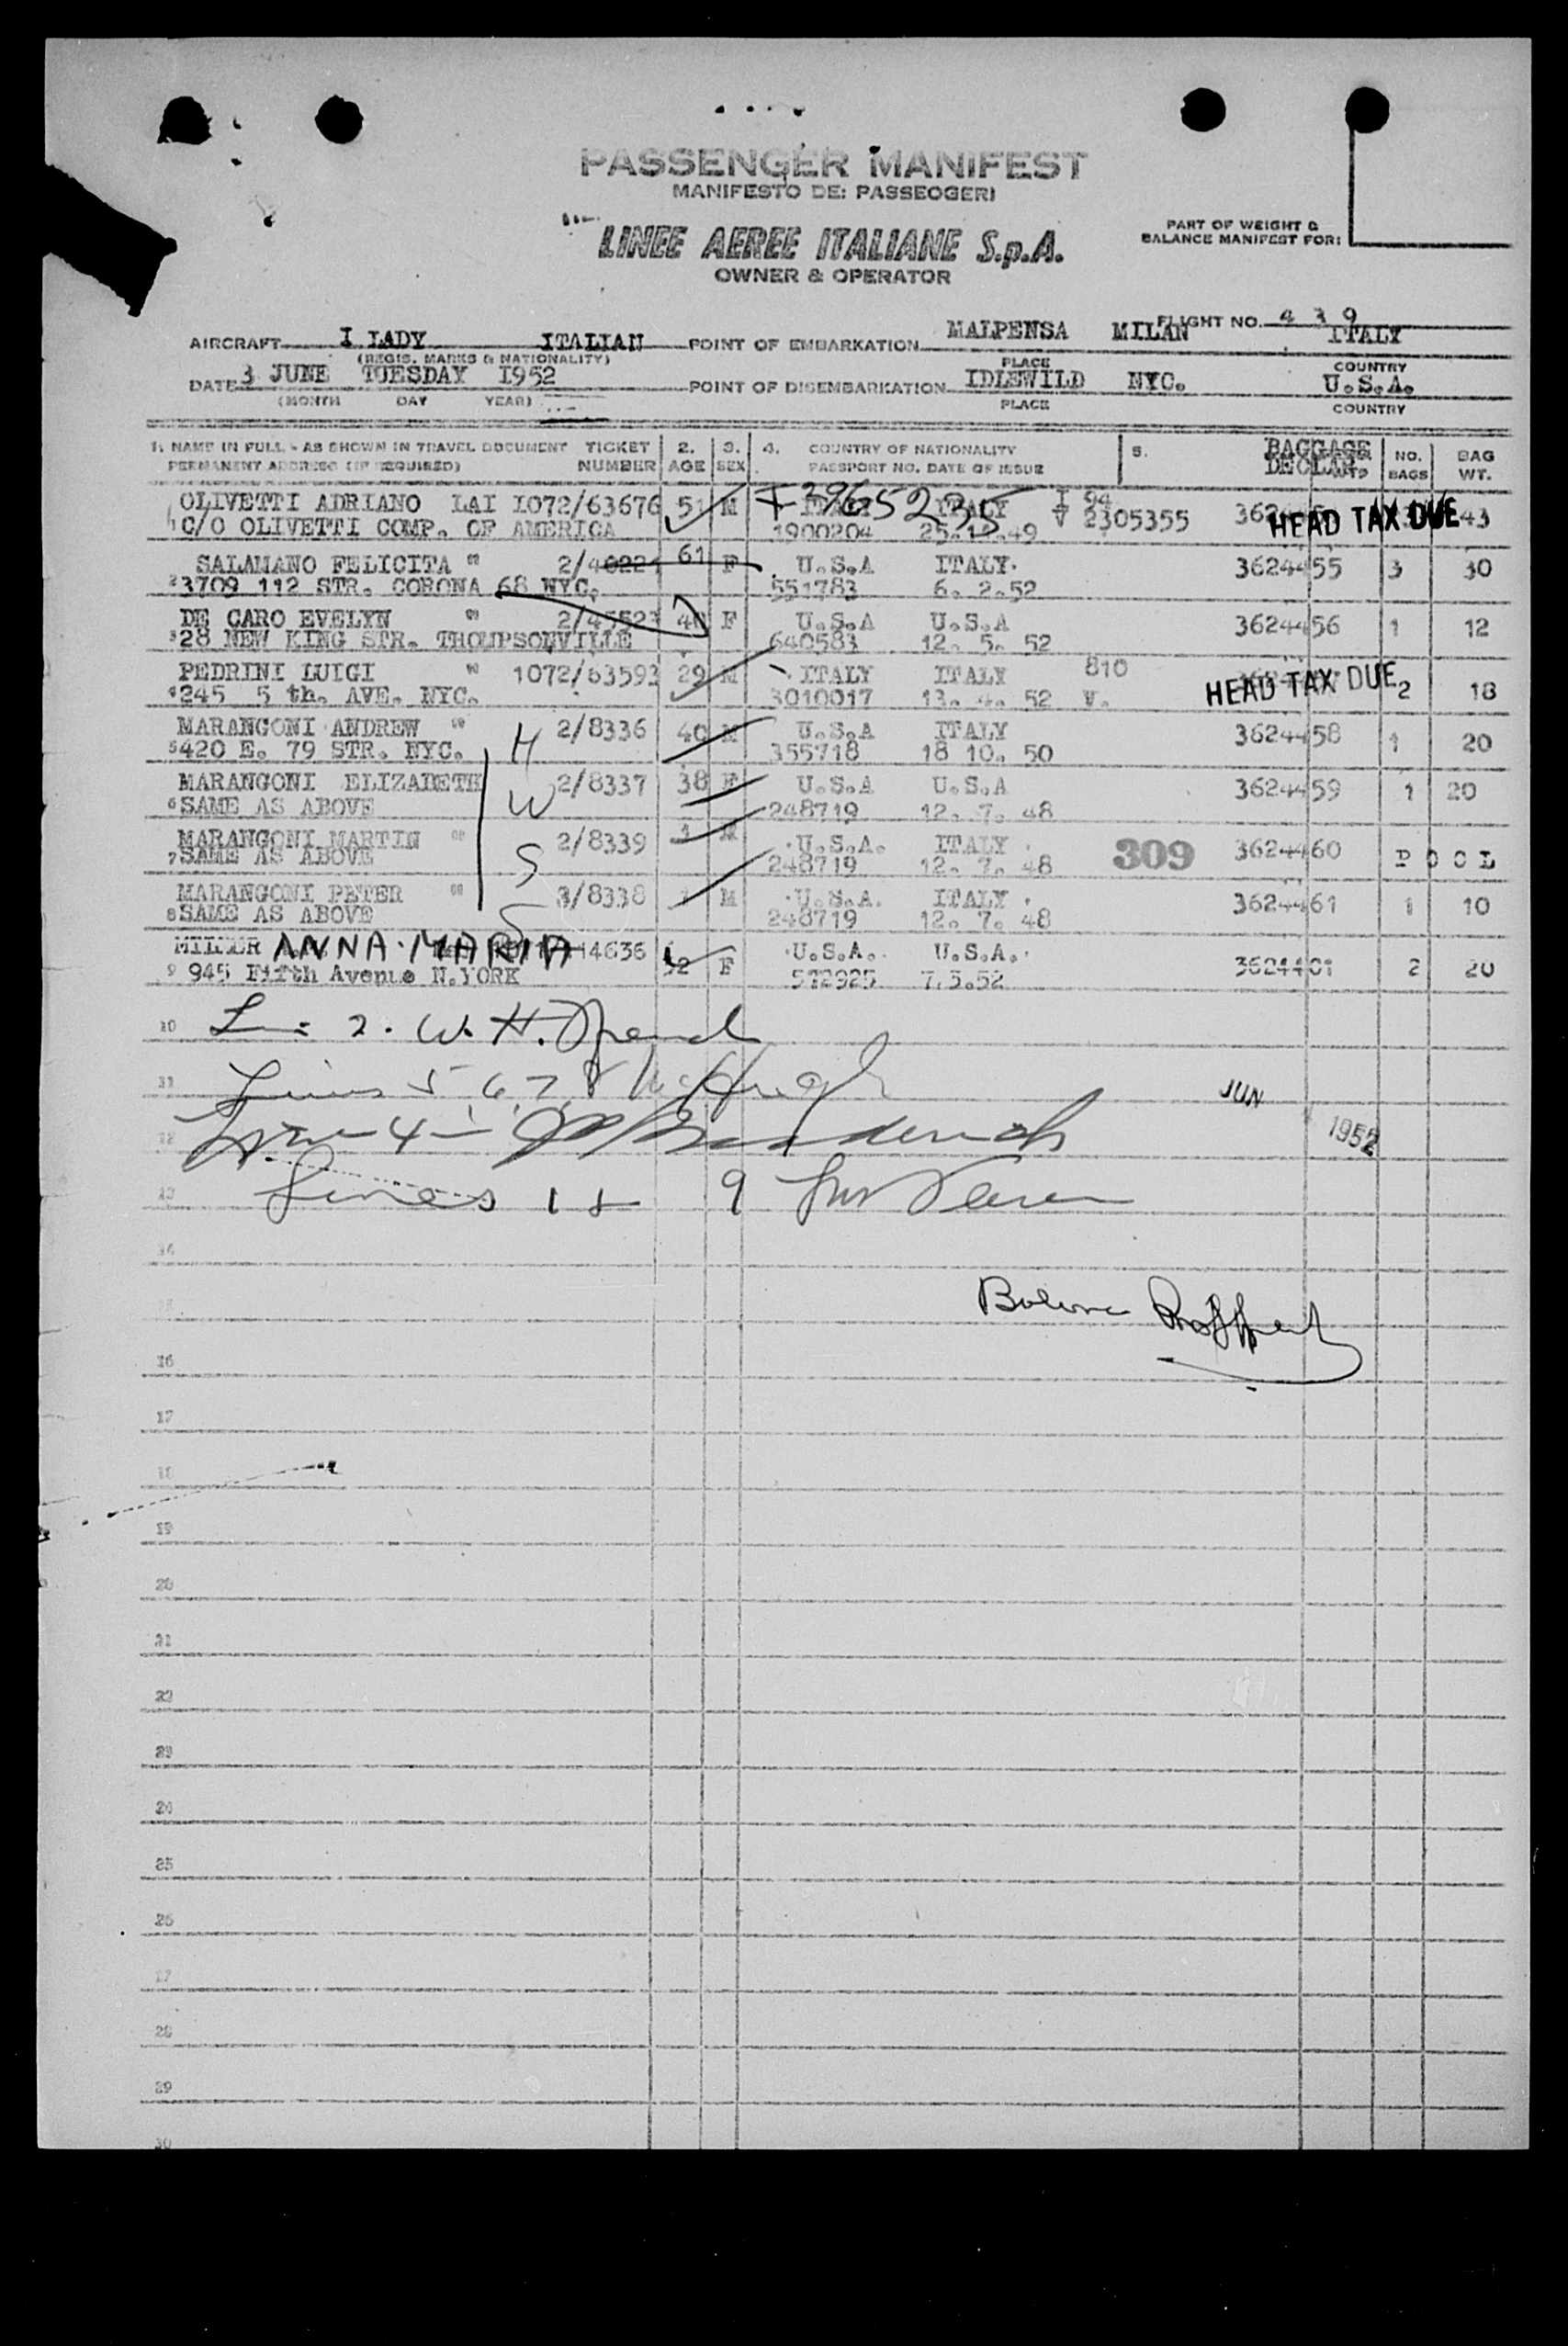 PASSENGER MANIFEST
MANIFESTO DEI PASSEGGERI
LINEE AEREE ITALIANE S.p.A.
OWNER & OPERATOR
PART OF WEIGHT &
BALANCE MANIFEST FOR:
FLIGHT NO. 4 3 9
AIRCRAFT I LADY ITALIAN POINT OF EMBARKATION MALPENSA MILAN ITALY
(REGIS. MARKS & NATIONALITY) PLACE COUNTRY
DATE 3 JUNE TUESDAY 1952 POINT OF DISEMBARKATION IDLEWILD NYC. U.S.A.
(MONTH DAY YEAR) PLACE COUNTRY
1. NAME IN FULL - AS SHOWN IN TRAVEL DOCUMENT TICKET 2. 3. 4. COUNTRY OF NATIONALITY 5. BAGGAGE NO. BAG
PERMANENT ADDRESS (IF REQUIRED) NUMBER AGE SEX PASSPORT NO. DATE OF ISSUE DECLAR. BAGS WT.
OLIVETTI ADRIANO LAI 1072/63676 51 M ITALY I 94 HEAD TAX DUE 43
1 C/O OLIVETTI COMP. OF AMERICA 1900204 V 2305355
SALAMANO FELICITA " 61 F U.S.A ITALY. 3624455 3 30
2 3709 112 STR. CORONA 68 NYC. 551783 6. 2.52
DE CARO EVELYN " 2/45523 40 F U.S.A U.S.A 3624456 1 12
3 28 NEW KING STR. THOUPSONVILLE 640583 12. 5. 52
PEDRINI LUIGI " 1072/63593 29 M ITALY ITALY 810 HEAD TAX DUE 2 18
4 245 5 th. AVE. NYC. 3010017 13. 4. 52 V.
MARANGONI ANDREW " H 2/8336 40 M U.S.A ITALY 3624458 1 20
5 420 E. 79 STR. NYC. 355718 18 10. 50
MARANGONI ELIZABETH W 2/8337 38 F U.S.A U.S.A 3624459 1 20
6 SAME AS ABOVE 248719 12. 7. 48
MARANGONI MARTIN " S 2/8339 1 M U.S.A. ITALY 309 3624460 P O O L
7 SAME AS ABOVE 248719 12. 7. 48
MARANGONI PETER " S 3/8338 M U.S.A. ITALY 3624461 1 10
8 SAME AS ABOVE 248719 12. 7. 48
ANNA·MARIA 14636 F U.S.A. U.S.A. 2 20
9 945 Fifth Avenue N.YORK 7.5.52
10 2. W. H.
11 Lines 5 6 7 8
12 4
JUN 1952
13 Lines 1 & 9
14
15
16
17
18
19
20
21
22
23
24
25
26
27
28
29
30